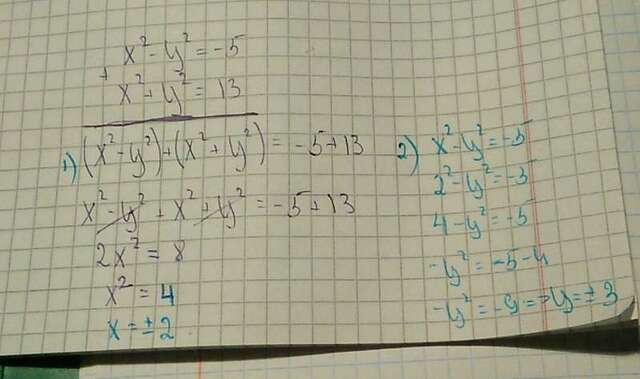 x² - y² = -5
+
x² + y² = 13
1) (x² - y²) + (x² + y²) = -5 + 13
x² - y² + x² + y² = -5 + 13
2x² = 8
x² = 4
x = ±2
2) x² - y² = -5
2² - y² = -5
4 - y² = -5
-y² = -5 - 4
-y² = -9 => y = ±3